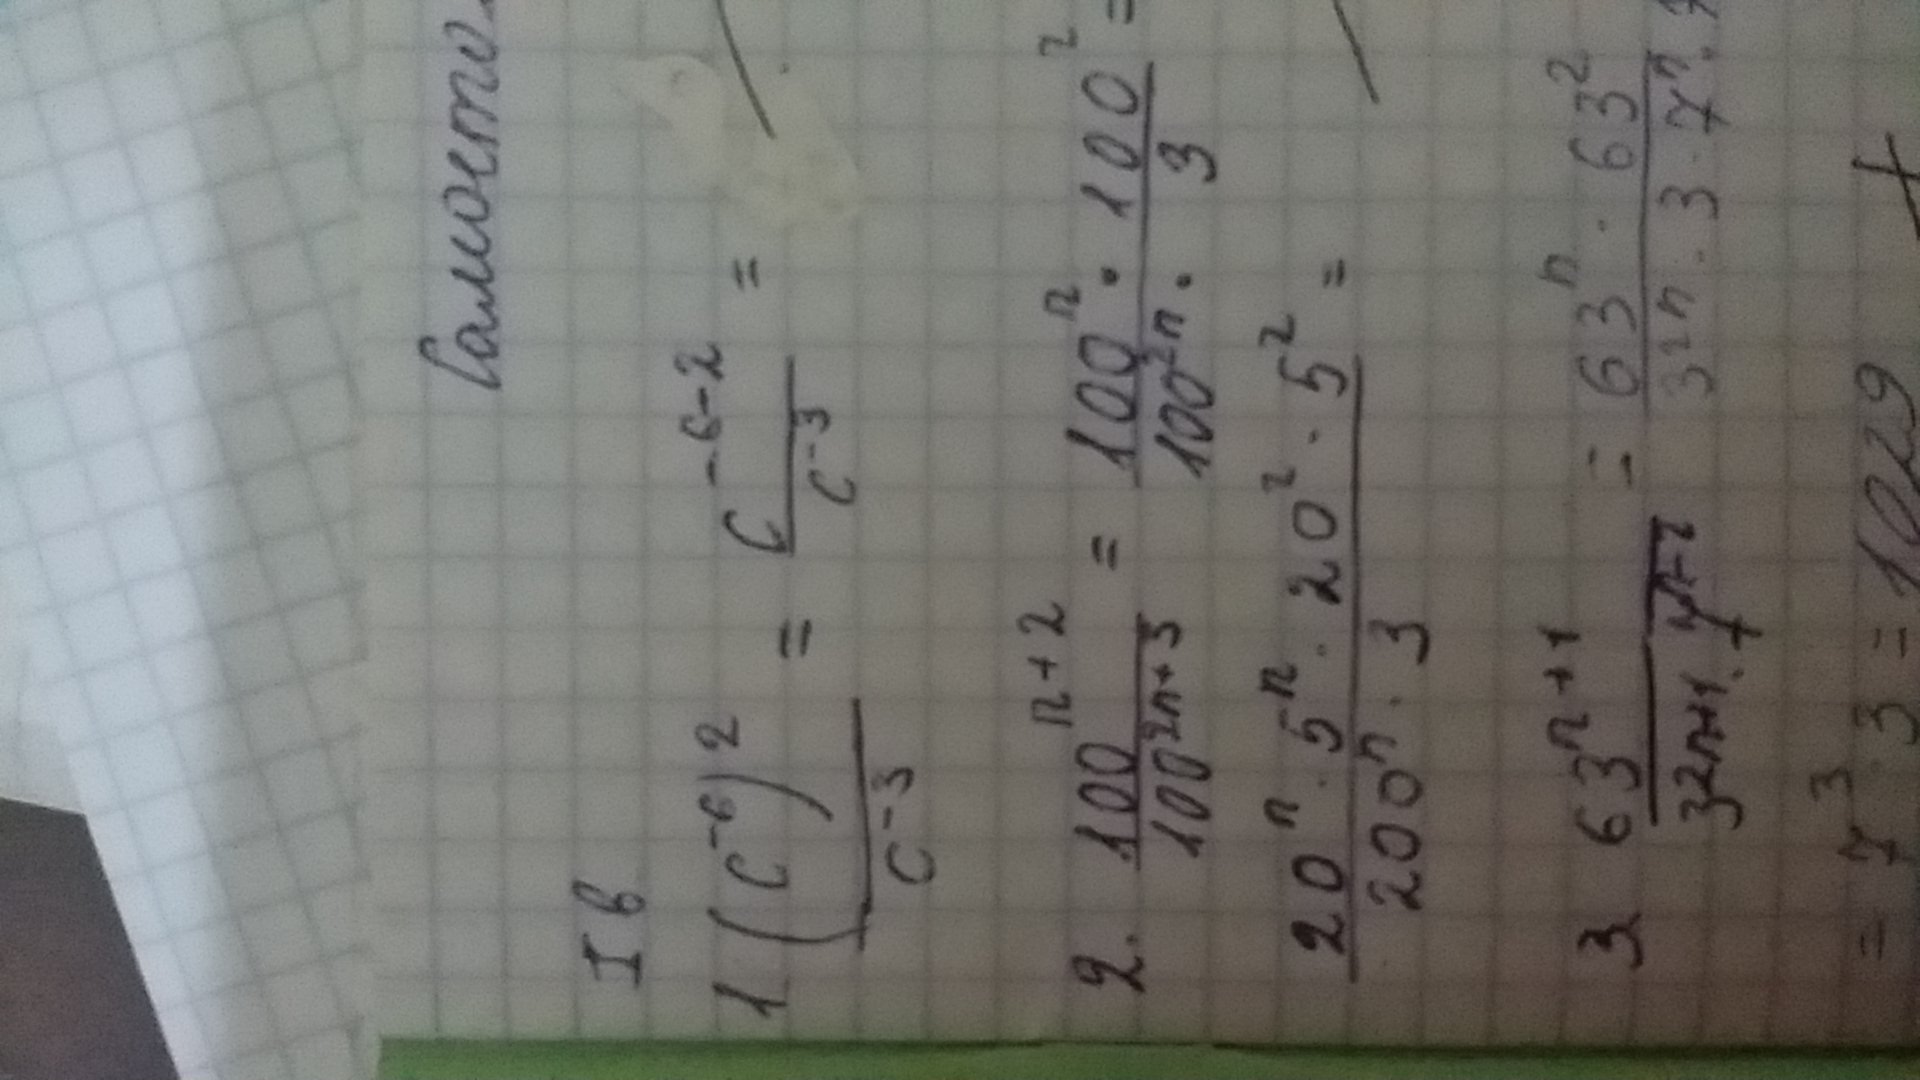 I в
1 (c^-6)^2 / c^-3 = c^-6-2 / c^-3 =
2. 100^n+2 / 100^2n+3 = 100^n · 100^2 / 100^2n · 3 =
20^n · 5^n · 20^2 · 5^2 / 200^n · 3 =
3 63^n+1 / 3^2n+1 · 7^n-2 = 63^n · 63^2 / 3^2n · 3 · 7^n ·
= 7^3 · 3 = 1029